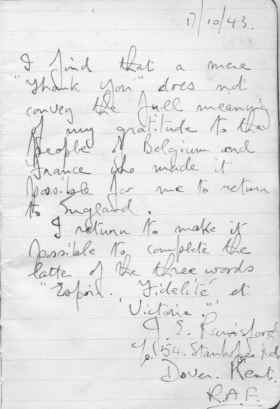 17/10/43.
I find that a mere
"Thank you" does not
convey the full meaning
of my gratitude to the
people of Belgium and
France who made it
possible for me to return
to England.
I return to make it
possible to complete the
latter of the three words
"Espoir, Fidelité et
Victoria."
J. E.
54. Stanhope Rd
Dover. Kent.
R.A.F.